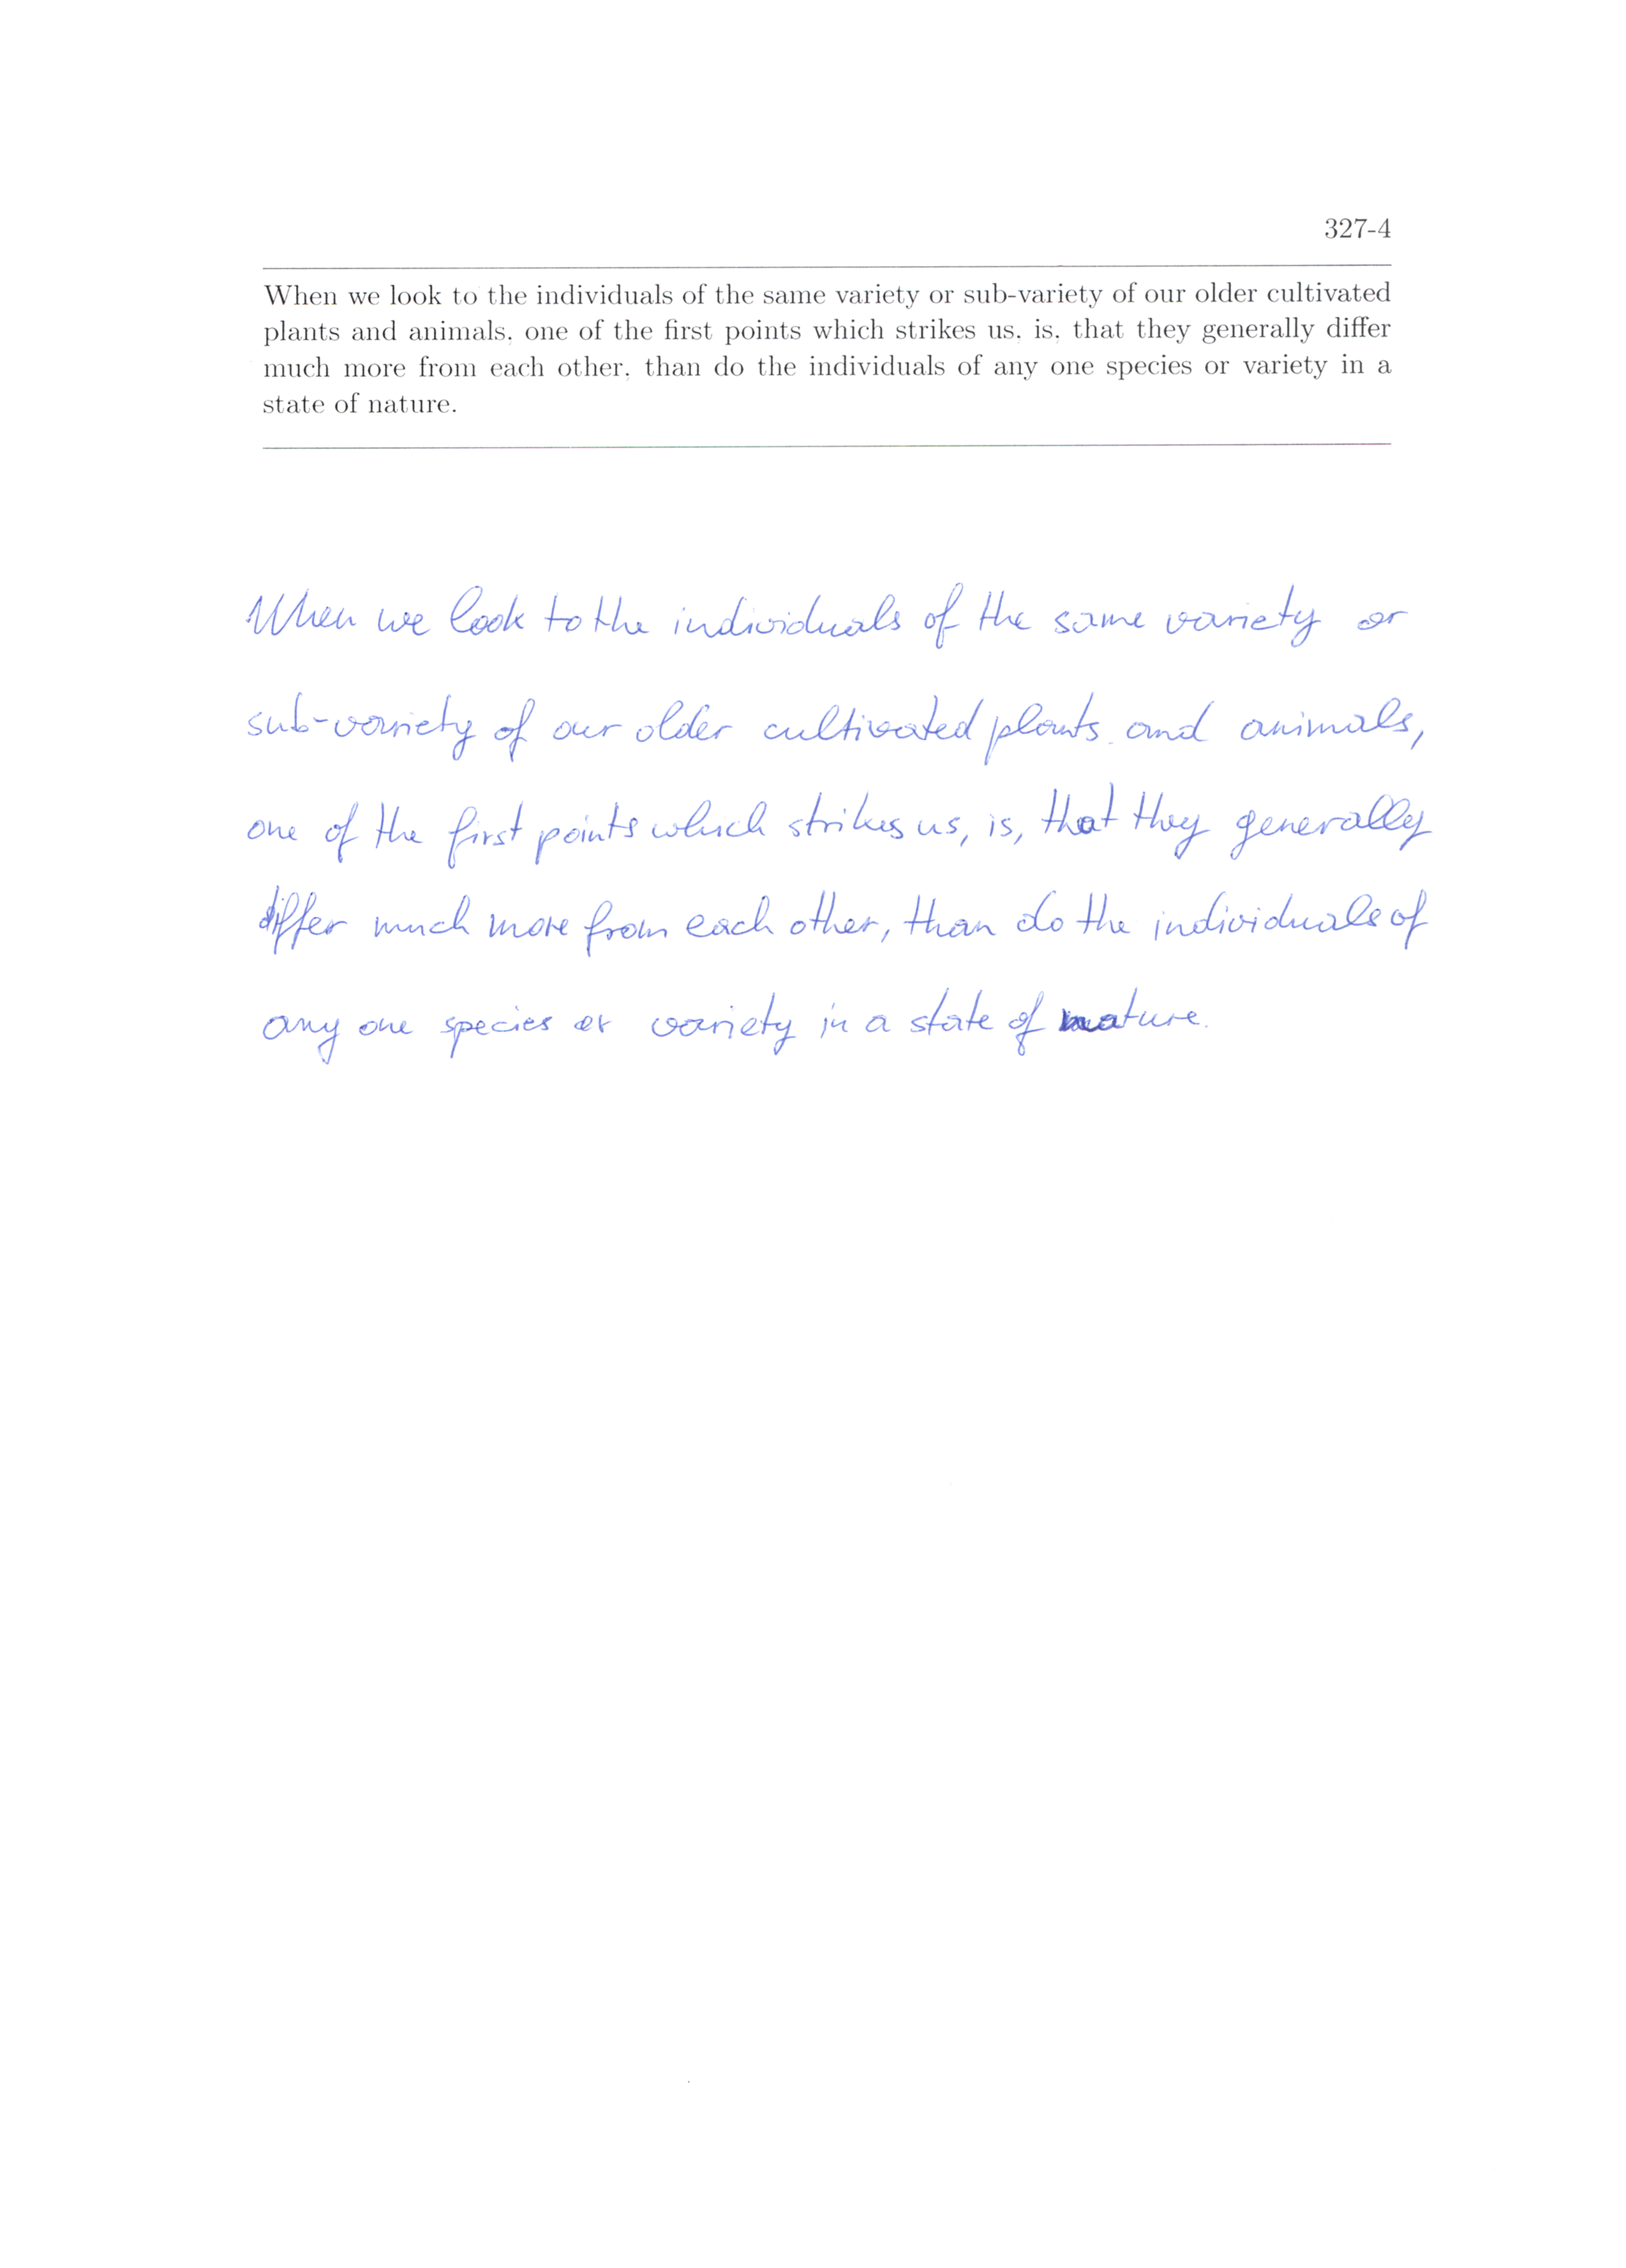 327-4
When we look to the individuals of the same variety or sub-variety of our older cultivated
plants and animals, one of the first points which strikes us, is, that they generally differ
much more from each other, than do the individuals of any one species or variety in a
state of nature.
When we look to the individuals of the same variety or
sub-variety of our older cultivated plants and animals,
one of the first points which strikes us, is, that they generally
differ much more from each other, than do the individuals of
any one species or variety in a state of nature.